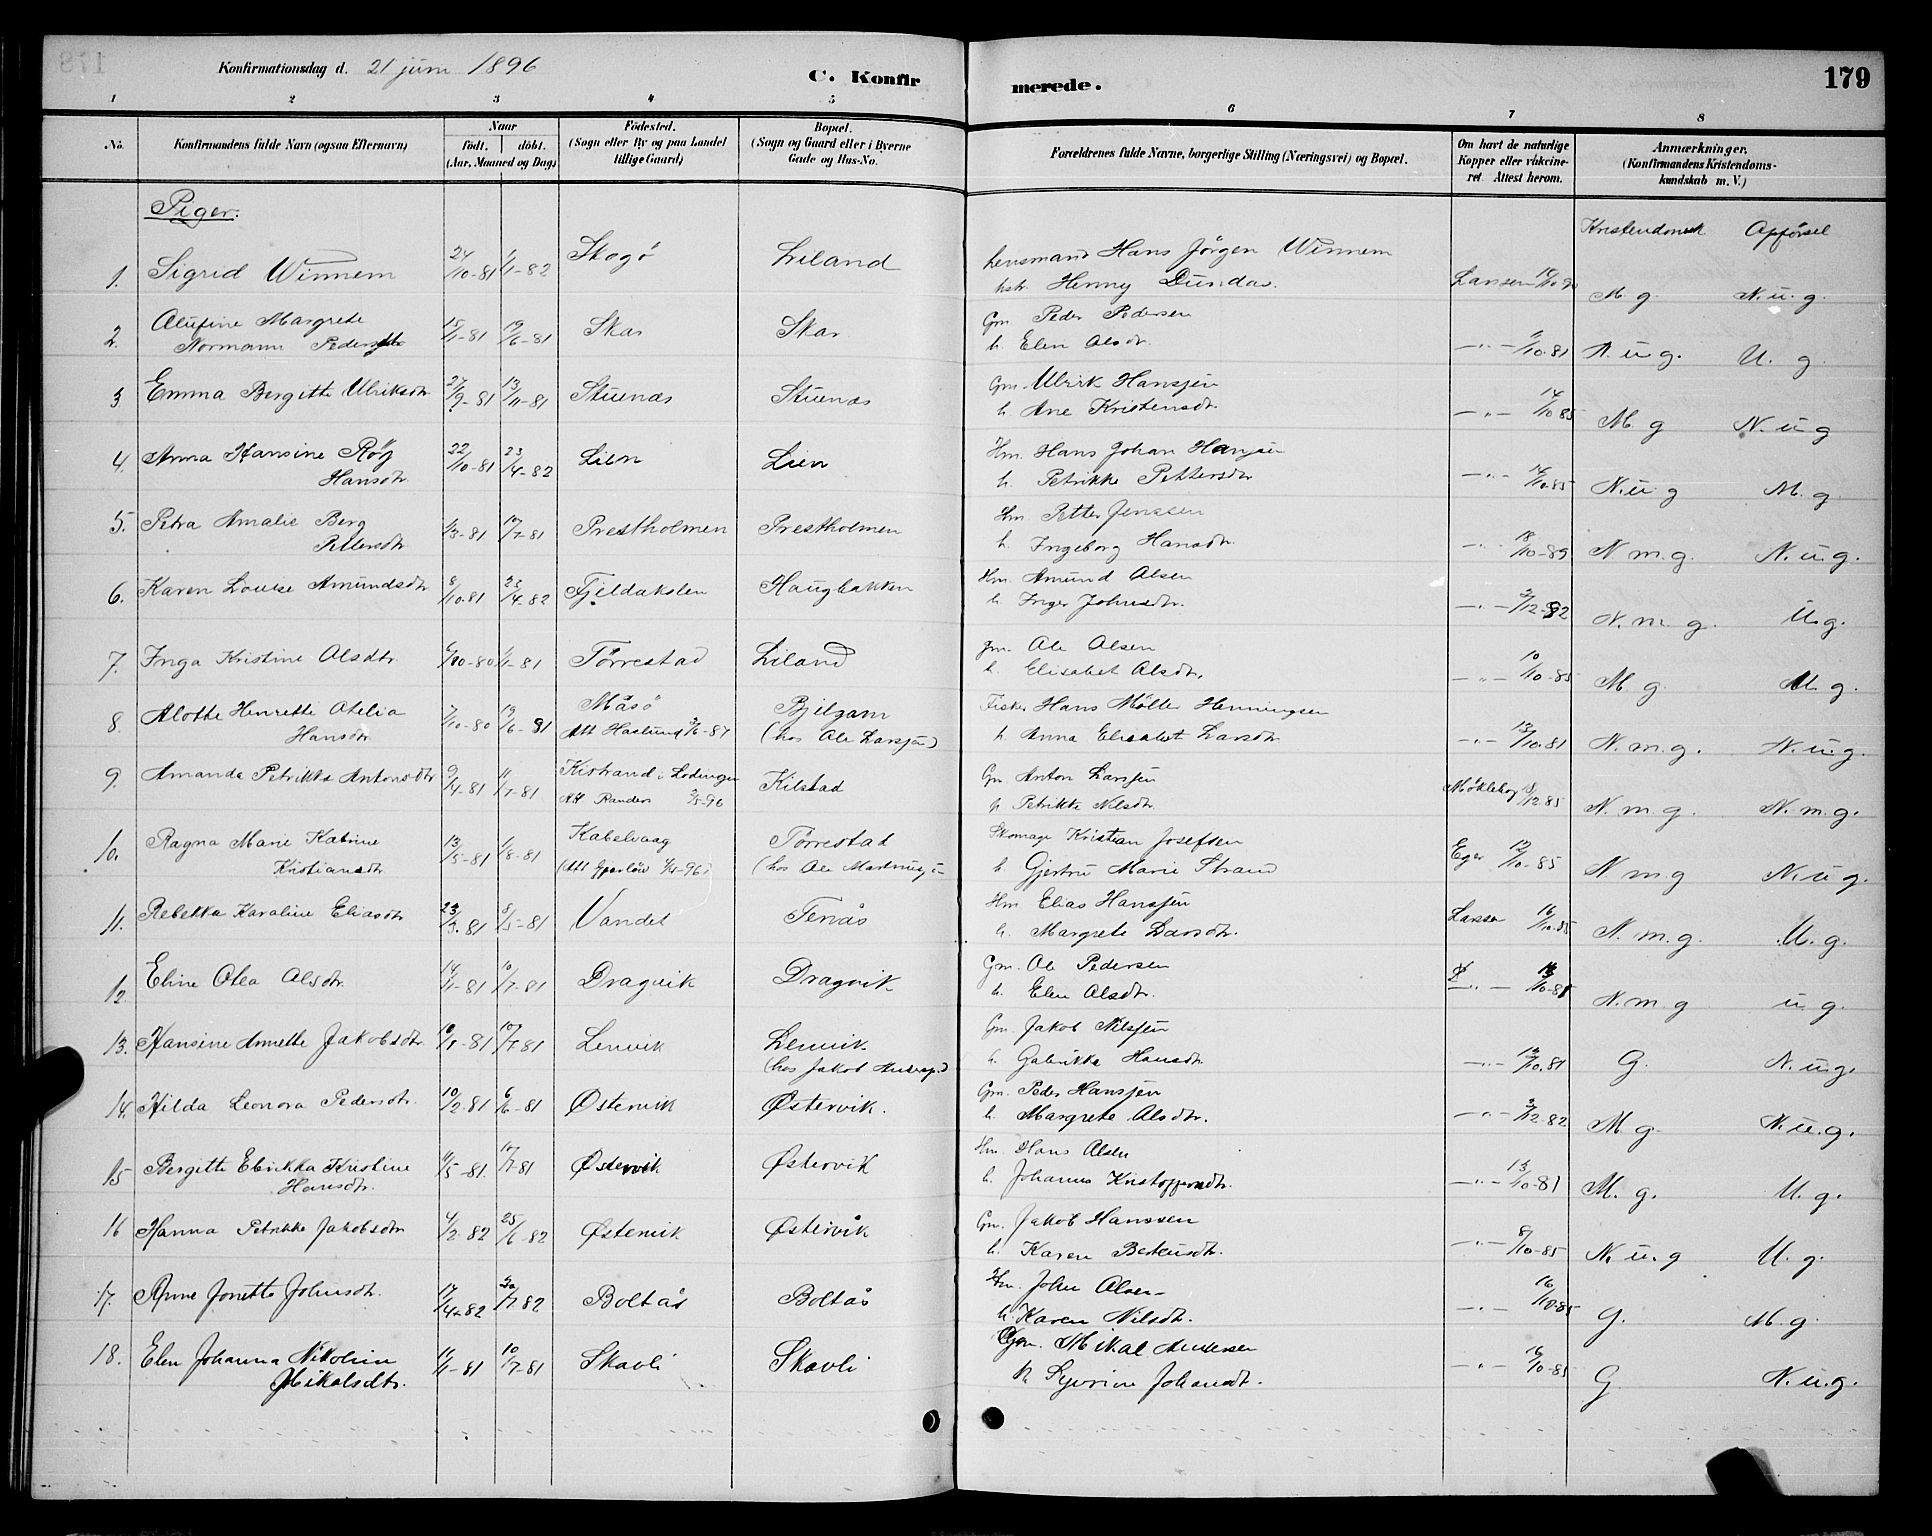 Konfirmationsdag d. 21 juni 1896
C. Konfirmerede.
179
1 2 3 4 5 6 7 8
No.
Konfirmandens fulde Navn (ogsaa Efternavn)
Naar
födt. döbt.
(Aar, Maaned og Dag)
Födested.
(Sogn eller By og paa Landet
tillige Gaard)
Bopæl.
(Sogn og Gaard eller i Byerne
Gade og Hus-No.
Forældrenes fulde Navne, borgerlige Stilling (Næringsvei) og Bopæl.
Om havt de naturlige
Kopper eller vakcine-
ret. Attest herom.
Anmærkninger.
(Konfirmandens Kristendoms-
kundskab m. V.)
Piger:
Kristendomsk Opførsel
1. Sigrid Winnem 24/10-81 1/1-82 Skogö Liland Lensmand Hans Jörgen Winnem
Henny Dundas Larsen M. g. N. u. g.
2. Alufine Margrete 15/1-81 19/6-81 Skar Skar Gm. Peder Pedersen
Normann h. Elen Olsdr. 11/10.81 N. u. g. U. g.
3 Emma Bergitte Ulriksdr 27/9-81 13/11-81 Stuenæs Stuenæs Gm. Ulrik Hansen
h. Ane Kristensdr. 14/10 85 M. g N. u g
4. Anna Hansine Röj 22/10-81 23/4-82 Lien Lien Hm. Hans Johan Hansen
Hansdr. h. Petrikke Pettersdr 14/10.85 N. u g M. g.
5. Petra Amalie Berg 1/3-81 17/7-81 Prestholmen Prestholmen Hm Petter Jenssen
Pettersdr h. Ingeborg Hansdr. 18/10-89 N m. g. N. u g.
6. Karen Louise Amundsdr 8/10.81 23/4-82 Fjeldakslen Haugbakken Hm. Amund Olsen
h. Inger Johnsdr. 2/12-92 N. m. g. U. g.
7. Inga Kristine Olsdtr. 10-80 1/1-81 Törrestad Liland Gm. Ole Olsen
h. Elisabet Olsdr. 10/10-85 M g. M. g.
8. Alotte Henrette Otelia 7/10-80 19/6-81 Måsö Fisker Hans Möller Henningsen
Hansdr. Att Haslund 6-87 (hos Ole Larsen) h. Anna Elisabet Larsdr 13/10.81 N. m. g. N. u. g.
9. Amanda Petrikka Antonsdtr 9/4-81 11/7-81 Kistrand i Lödingen Kilstad Gm Anton Larsen
Att Randers 5-96 h Petrikke Nilsdr. 12 85 N. m. g. N. m. g.
10. Ragna Marie Katrine 13/5-81 1/8-81 Kabelvaag Törrestad Skomager Kristian Josefsen
Kristiansdtr (hos Ole h. Marie Strand Eger 12/10-85 N m g N. u g.
11. Rebekka Karoline Eliasdr 23/3.81 8/5-81 Vandet Tenås Hm Elias Hansen
h. Margrete Larsdtr. Larsen 16/10.85 N. m. g. U. g.
12 Eline Olea Olsdtr. 14/1-81 10/7-81 Dragvik Dragvik Gm. Ole Pedersen
h. Elen Olsdtr. N. m. g u. g.
13. Hansine Annette Jakobsdtr. 10/1-81 17/7 81 Lenvik Lenvik Gm. Jakob Nilsen
(hos Jakob h. Hansdr. 13/10.81 G. N. u. g.
14. Hilda Leonora Pedersdtr. 10/2.81 6/6-81 Østervik Østervik. Gm. Peder Hansen
h. Margrete Olsdtr. 2/12-82 M g. N. u. g.
15 Bergitte Elrikka Kristine 11/5-81. 17/7-81 Østervik Østervik Hm. Hans Olsen
Hansdtr. h. Johanna Kristoffersdtr. 13/10-81 M. g. U. g.
16 Hanna Petrikke Jakobsdtr 4/2-82 25/6-82 Østervik Østervik Gm. Jakob Hanssen
h. Karen Berteusdtr. 8/10-85 N. u. g U. g.
17. Anne Jonette Johnsdtr. 17/4-82 7.82 Boltås Boltås Hm. John Olsen
h. Karen Nilsdtr. 16/10-85 G. M. g.
18. Elen Johanna Nikoline 11/1-81 10/7-81 Skavli Skavli Gm. Mikal Andersen
Mikalsdtr. h Syverine Johansdtr. 16/10-85 G. N. u. g.